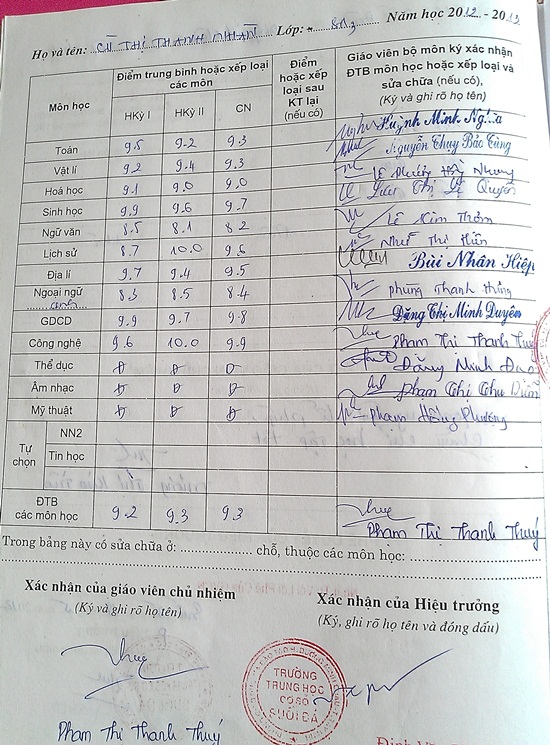 Họ và tên: CÙ THỊ THANH NHÀN Lớp: 8A3 Năm học 2012 - 2013
Môn học Điểm trung bình hoặc xếp loại các môn Điểm hoặc xếp loại sau KT lại (nếu có) Giáo viên bộ môn ký xác nhận ĐTB môn học hoặc xếp loại và sửa chữa (nếu có), (Ký và ghi rõ họ tên)
HKỳ I HKỳ II CN
Toán 9.5 9.2 9.3 Huỳnh Minh
Vật lí 9.2 9.4 9.3 Nguyễn Thụy Bảo
Hoá học 9.1 9.0 9.0 Lê Hồng Nhung
Sinh học 9.9 9.6 9.7 Lưu Thị Lệ Quyên
Ngữ văn 8.5 8.1 8.2 Lê Kim Thơm
Lịch sử 8.7 10.0 9.6 Thị
Địa lí 9.7 9.4 9.5 Bùi Nhân Hiệp
Ngoại ngữ 8.3 8.5 8.4 Phùng Thanh Hùng
GDCD 9.9 9.7 9.8 Đặng Thị Minh Duyên
Công nghệ 9.6 10.0 9.9 Phạm Thị Thanh Thuý
Thể dục Đ Đ Đ Đặng Minh
Âm nhạc Đ Đ Đ Phạm Thị Thu Diễm
Mỹ thuật Đ Đ Đ Phạm Hồng Phượng
Tự chọn NN2
Tin học
ĐTB các môn học 9.2 9.3 9.3 Phạm Thị Thanh Thuý
Trong bảng này có sửa chữa ở: .................... chỗ, thuộc các môn học: ....................
Xác nhận của giáo viên chủ nhiệm Xác nhận của Hiệu trưởng
(Ký và ghi rõ họ tên) (Ký, ghi rõ họ tên và đóng dấu)
TRƯỜNG
TRUNG HỌC
CƠ SỞ
SUỐI ĐÁ
Phạm Thị Thanh Thuý